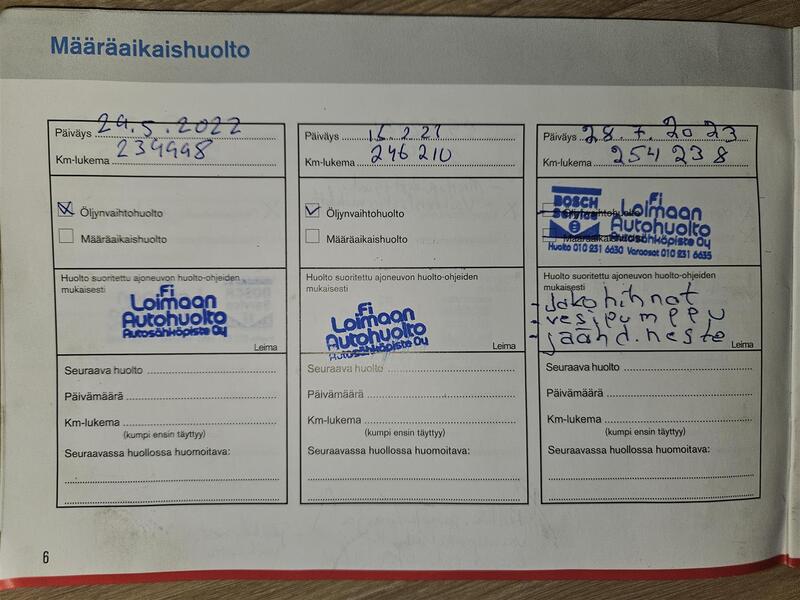 Määräaikaishuolto
Päiväys 29.5.2022
Km-lukema 239998
Öljynvaihtohuolto
Määräaikaishuolto
Huolto suoritettu ajoneuvon huolto-ohjeiden
mukaisesti
Fi
Loimaan
Autohuolto
Autosähköpiste Oy
Leima
Seuraava huolto
Päivämäärä
Km-lukema
(kumpi ensin täyttyy)
Seuraavassa huollossa huomoitava:
Päiväys
Km-lukema 246210
Öljynvaihtohuolto
Määräaikaishuolto
Huolto suoritettu ajoneuvon huolto-ohjeiden
mukaisesti
Fi
Loimaan
Autohuolto
Autosähköpiste Oy
Leima
Seuraava huolto
Päivämäärä
Km-lukema
(kumpi ensin täyttyy)
Seuraavassa huollossa huomoitava:
Päiväys 28.7.2023
Km-lukema 254238
BOSCH
Service
Fi
Loimaan
Autohuolto
Autosähköpiste Oy
Öljynvaihtohuolto
Määräaikaishuolto
Huolto 010 231 6630 Varaosat 010 231 6635
Huolto suoritettu ajoneuvon huolto-ohjeiden
mukaisesti
- Jakohihnat
- vesipumppu
- jäähd.neste
Leima
Seuraava huolto
Päivämäärä
Km-lukema
(kumpi ensin täyttyy)
Seuraavassa huollossa huomoitava:
6